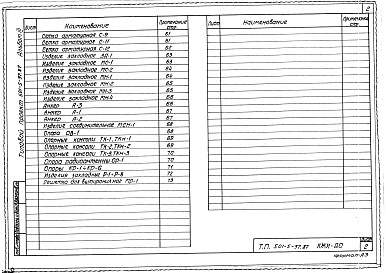 2
Альбом IV
Типовой проект 501-5-97.87
Лист
Наименование
Примечание стр.
Лист
Наименование
Примечание стр.
Сетка арматурная С-9 61
Сетка арматурная С-11 61
Сетка арматурная С-12 62
Изделие закладное 63
Изделие закладное 63
Изделие закладное МН-2 64
Изделие закладное 64
Изделие закладное 65
Изделие закладное 65
Изделие закладное МН-4 66
Анкер А-3 66
Анкер А-1 67
Анкер А-2 67
Изделие соединительное МСН-1 68
Опора 68
Опорные консоли ТК-1, ТКн-1 69
Опорные консоли ТК-2, ТКн-2 69
Опорные консоли ТК-3, ТКн-3 70
Опора радиоантенны 70
Опоры 71
Изделия закладные 72
Решетка для вытирания ног 73
Т.П. 501-5-97.87 КЖИ-ДО
Лист
2
Формат А3